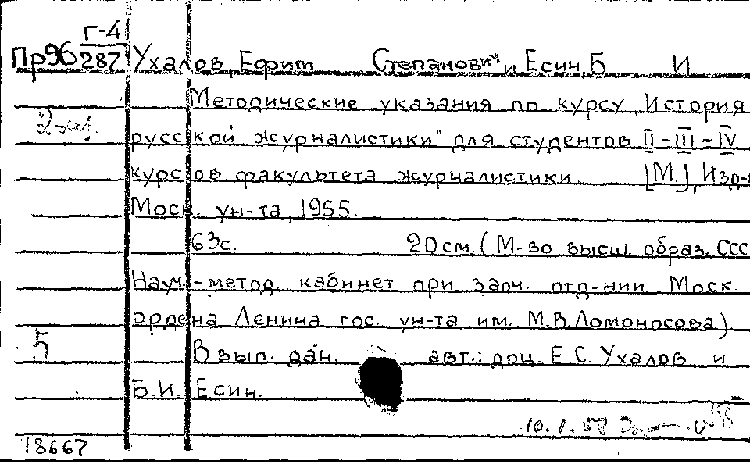 Г-4
Пр96 287 Ухалов, Ефим Степанович и Есин, Б И
Методические указания по курсу „История
русской журналистики" для студентов II-III-IV
курсов факультета журналистики. [М.], Изд-
Моск. ун-та, 1955.
63с. 20см. (М-во высш. образ. ССС
Науч.-метод. кабинет при заоч. отд-нии Моск.
ордена Ленина гос. ун-та им. М.В.Ломоносова)
5 В вып. дан. авт.: доц. Е.С. Ухалов и
Б.И. Есин.
18667